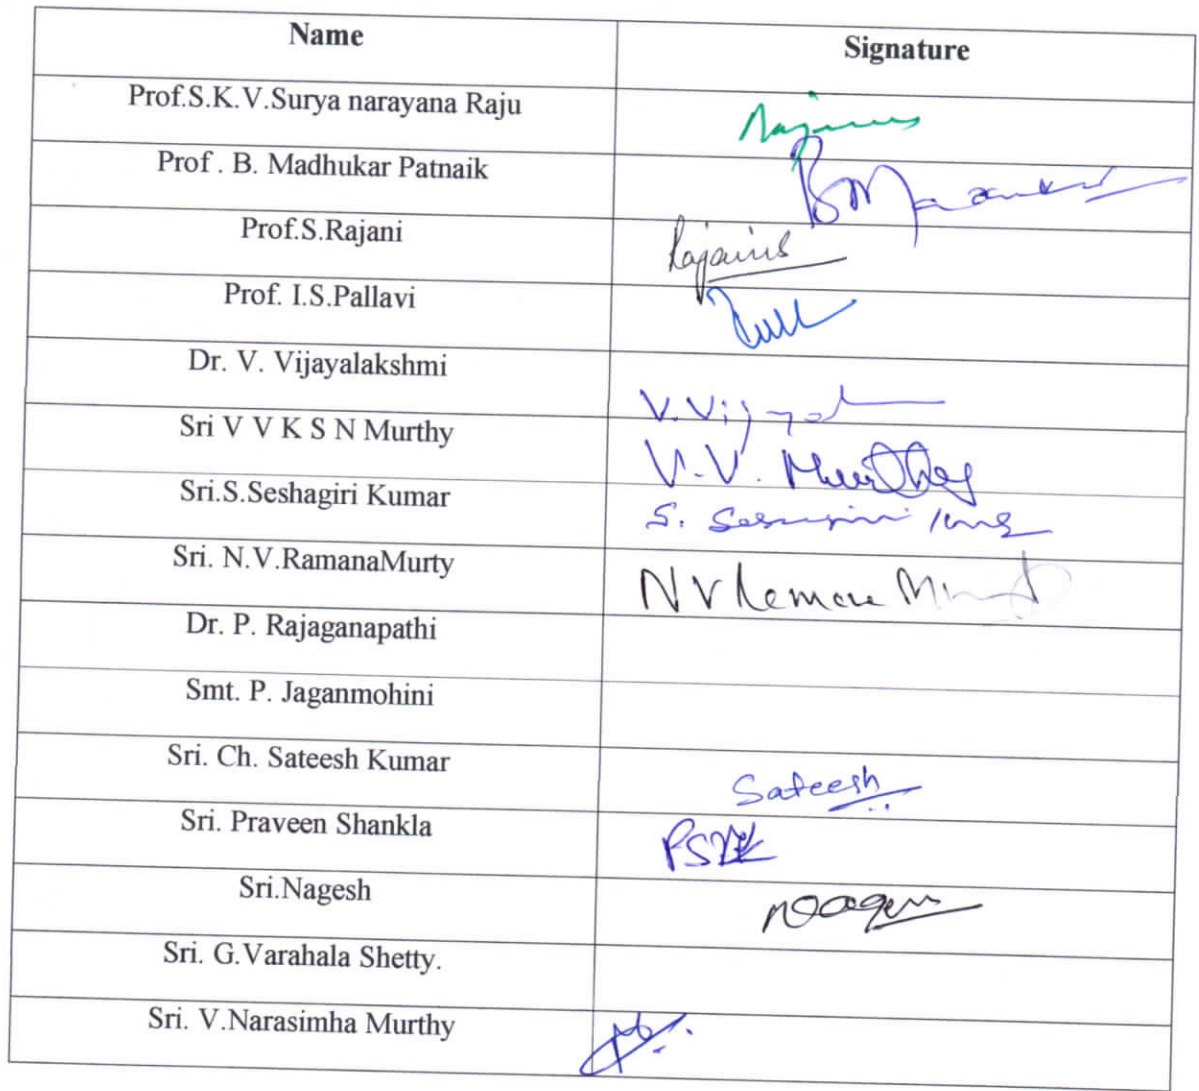 Name Signature
Prof.S.K.V.Surya narayana Raju
Prof . B. Madhukar Patnaik
Prof.S.Rajani
Prof. I.S.Pallavi
Dr. V. Vijayalakshmi
Sri V V K S N Murthy V.V. Murthy
Sri.S.Seshagiri Kumar
Sri. N.V.RamanaMurty
Dr. P. Rajaganapathi
Smt. P. Jaganmohini
Sri. Ch. Sateesh Kumar Sateesh
Sri. Praveen Shankla
Sri.Nagesh
Sri. G.Varahala Shetty.
Sri. V.Narasimha Murthy